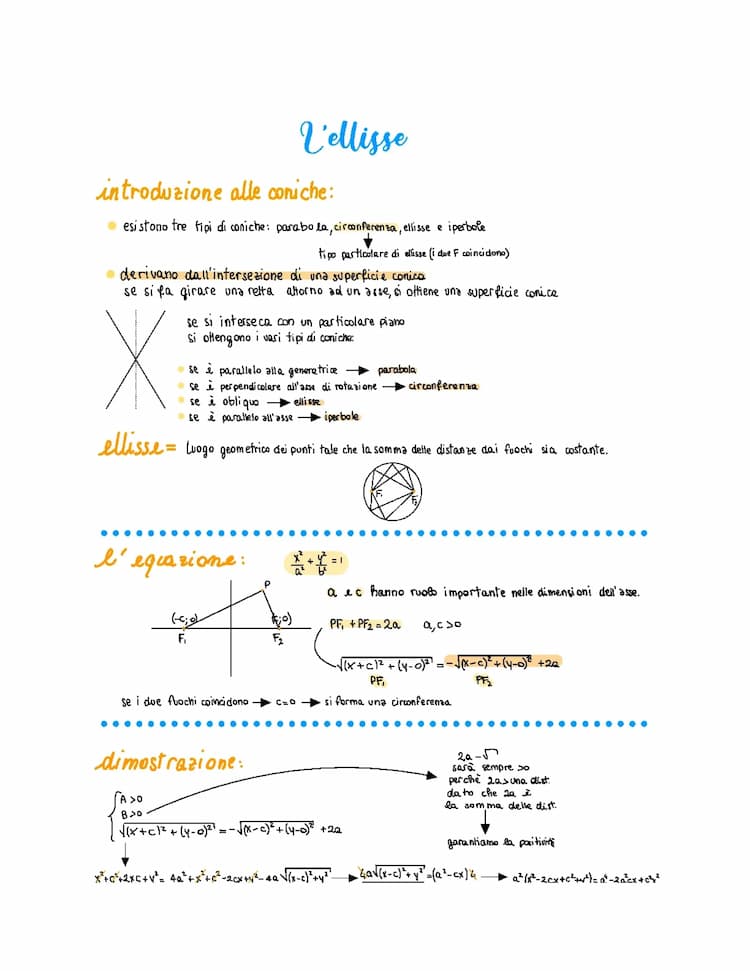 L'ellisse
introduzione alle coniche:
esistono tre tipi di coniche: parabola, circonferenza, ellisse e iperbole
tipo particolare di ellisse (i due F coincidono)
derivano dall'intersezione di una superficie conica
se si fa girare una retta attorno ad un asse, si ottiene una superficie conica
se si interseca con un particolare piano
si ottengono i vari tipi di coniche:
se è parallelo alla generatrice → parabola
se è perpendicolare all'asse di rotazione → circonferenza
se è obliquo → ellisse
se è parallelo all'asse → iperbole
ellisse = Luogo geometrico dei punti tale che la somma delle distanze dai fuochi sia costante.
F₁ F₂
l'equazione: x²/a² + y²/b² = 1
P
a e c hanno ruolo importante nelle dimensioni dell'asse.
(-c;0) (c;0)
PF₁ + PF₂ = 2a a,c>0
F₁ F₂
√(x+c)² + (y-0)² = -√(x-c)² + (y-0)² + 2a
PF₁ PF₂
se i due fuochi coincidono → c=0 → si forma una circonferenza
dimostrazione:
2a - √
sarà sempre >0
perchè 2a > una dist.
dato che 2a è
la somma delle dist.
garantiamo la positività
A >0
B >0
√(x+c)² + (y-0)² = -√(x-c)² + (y-0)² + 2a
x²+c²+2xc+y² = 4a²+x²+c²-2cx+y²-4a√(x-c)²+y² → 4a√(x-c)²+y² = (a²-cx)4 → a²(x²-2cx+c²+y²) = a⁴-2a²cx+c²x²